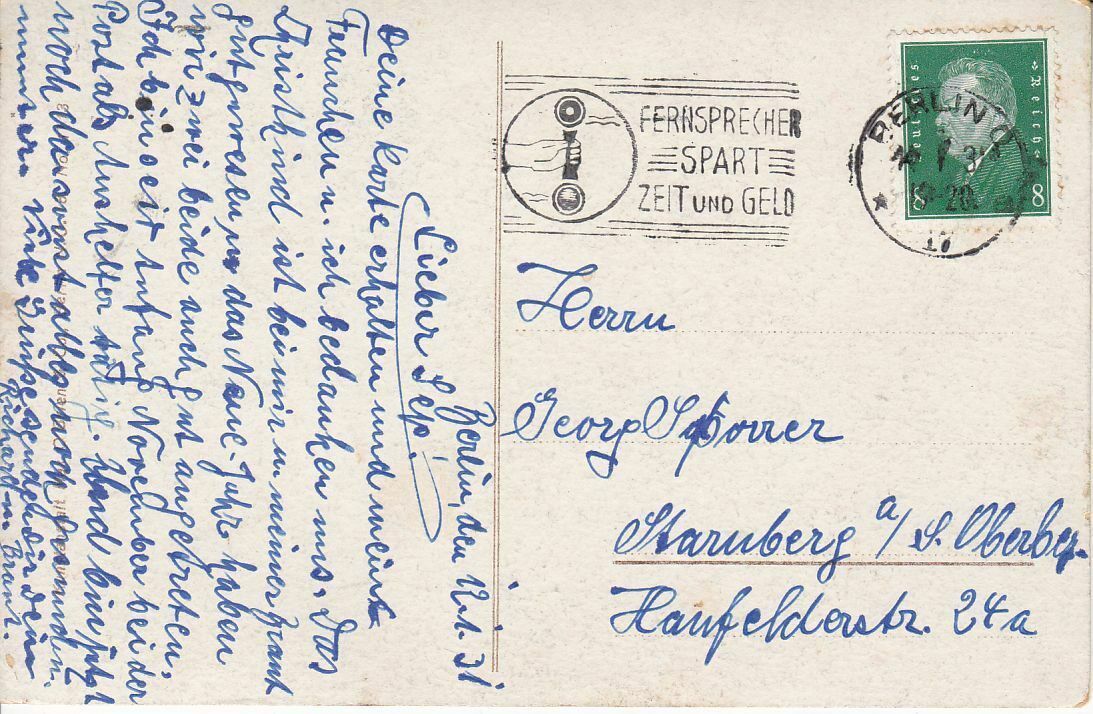 Berlin, den 12.1.31
Lieber Sepp!
Deine Karte erhalten und meine
Frauchen u. ich bedanken uns. Das
Christkind ist bei mir u. meiner Braut
gut gewesen, das Neue-Jahr haben
wir zwei beide auch gut angetreten,
Ich bin seit Anfang November bei der
Post als Aushelfer tätig. Und bin jetzt
noch da, sonst alles noch gesund u.
munter. Viele Grüße sendet Dir Dein
Richard u. Braut.
FERNSPRECHER
SPART
ZEIT UND GELD
Deutsches Reich
8 8
BERLIN
17
Herrn
Georg Sporrer
Starnberg a/S. Oberbay.
Hanfelderstr. 24a